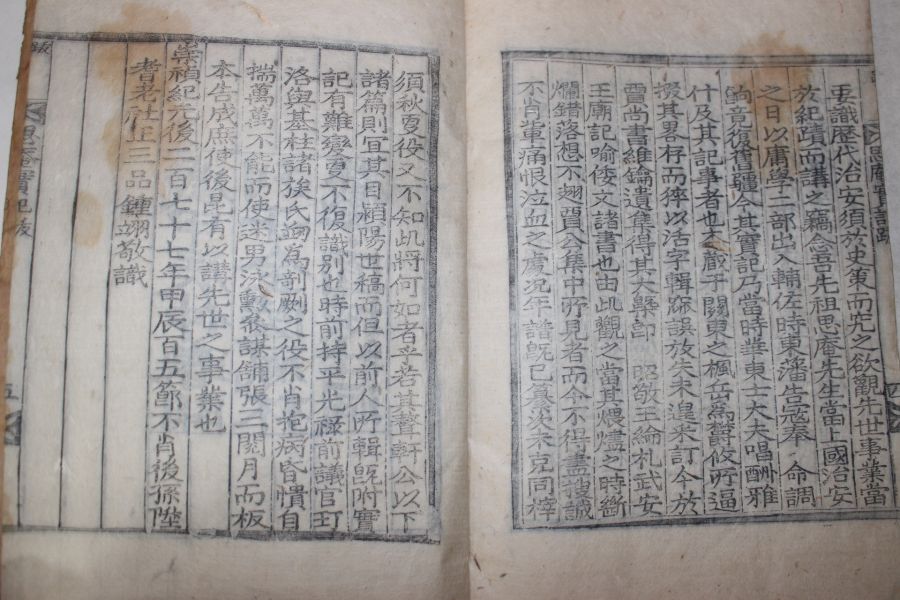 要識歷代治安須於史策而究之欲觀先世事業當
於紀蹟而講之竊念吾先祖思庵先生當上國治安
之日以庸學二部出入輔佐時東藩告寇奉 命調
餉竟復舊疆今其實記乃當時華東士大夫唱酬雅
什及其記事者也 藏于關東之楓岳爲鬱攸所逼
掇其畧存而猝以活字輯 誤放失未遑釆訂今於
尙書維鑰遺集得其大槩卽 昭敬王綸札武安
王廟記喻倭文諸書也由此觀之當其煨燼之時斷
爛錯落想不翅 公集中所見者而今不得盡搜誠
不肖輩痛恨泣血之處况年譜旣已纂次未克同梓
須秋夏役又不知此將何如者乎若其聱軒公以下
諸篇則宜其目潁陽世稿而但以前人所輯旣附實
記有難變 不復識別也時前持平光 前議官玎
洛與基柱諸族氏 爲剞劂之役不肖抱病昏憒自
揣萬萬不能而使迷男泳勳 謀鋪張三閱月而板
本告成庶使後昆有以讚先世之事業也
崇禎紀元後二百七十七年甲辰百五節不肖後孫陞
耆老社正三品鍾翊敬識
思庵實記跋
思庵實記跋
五